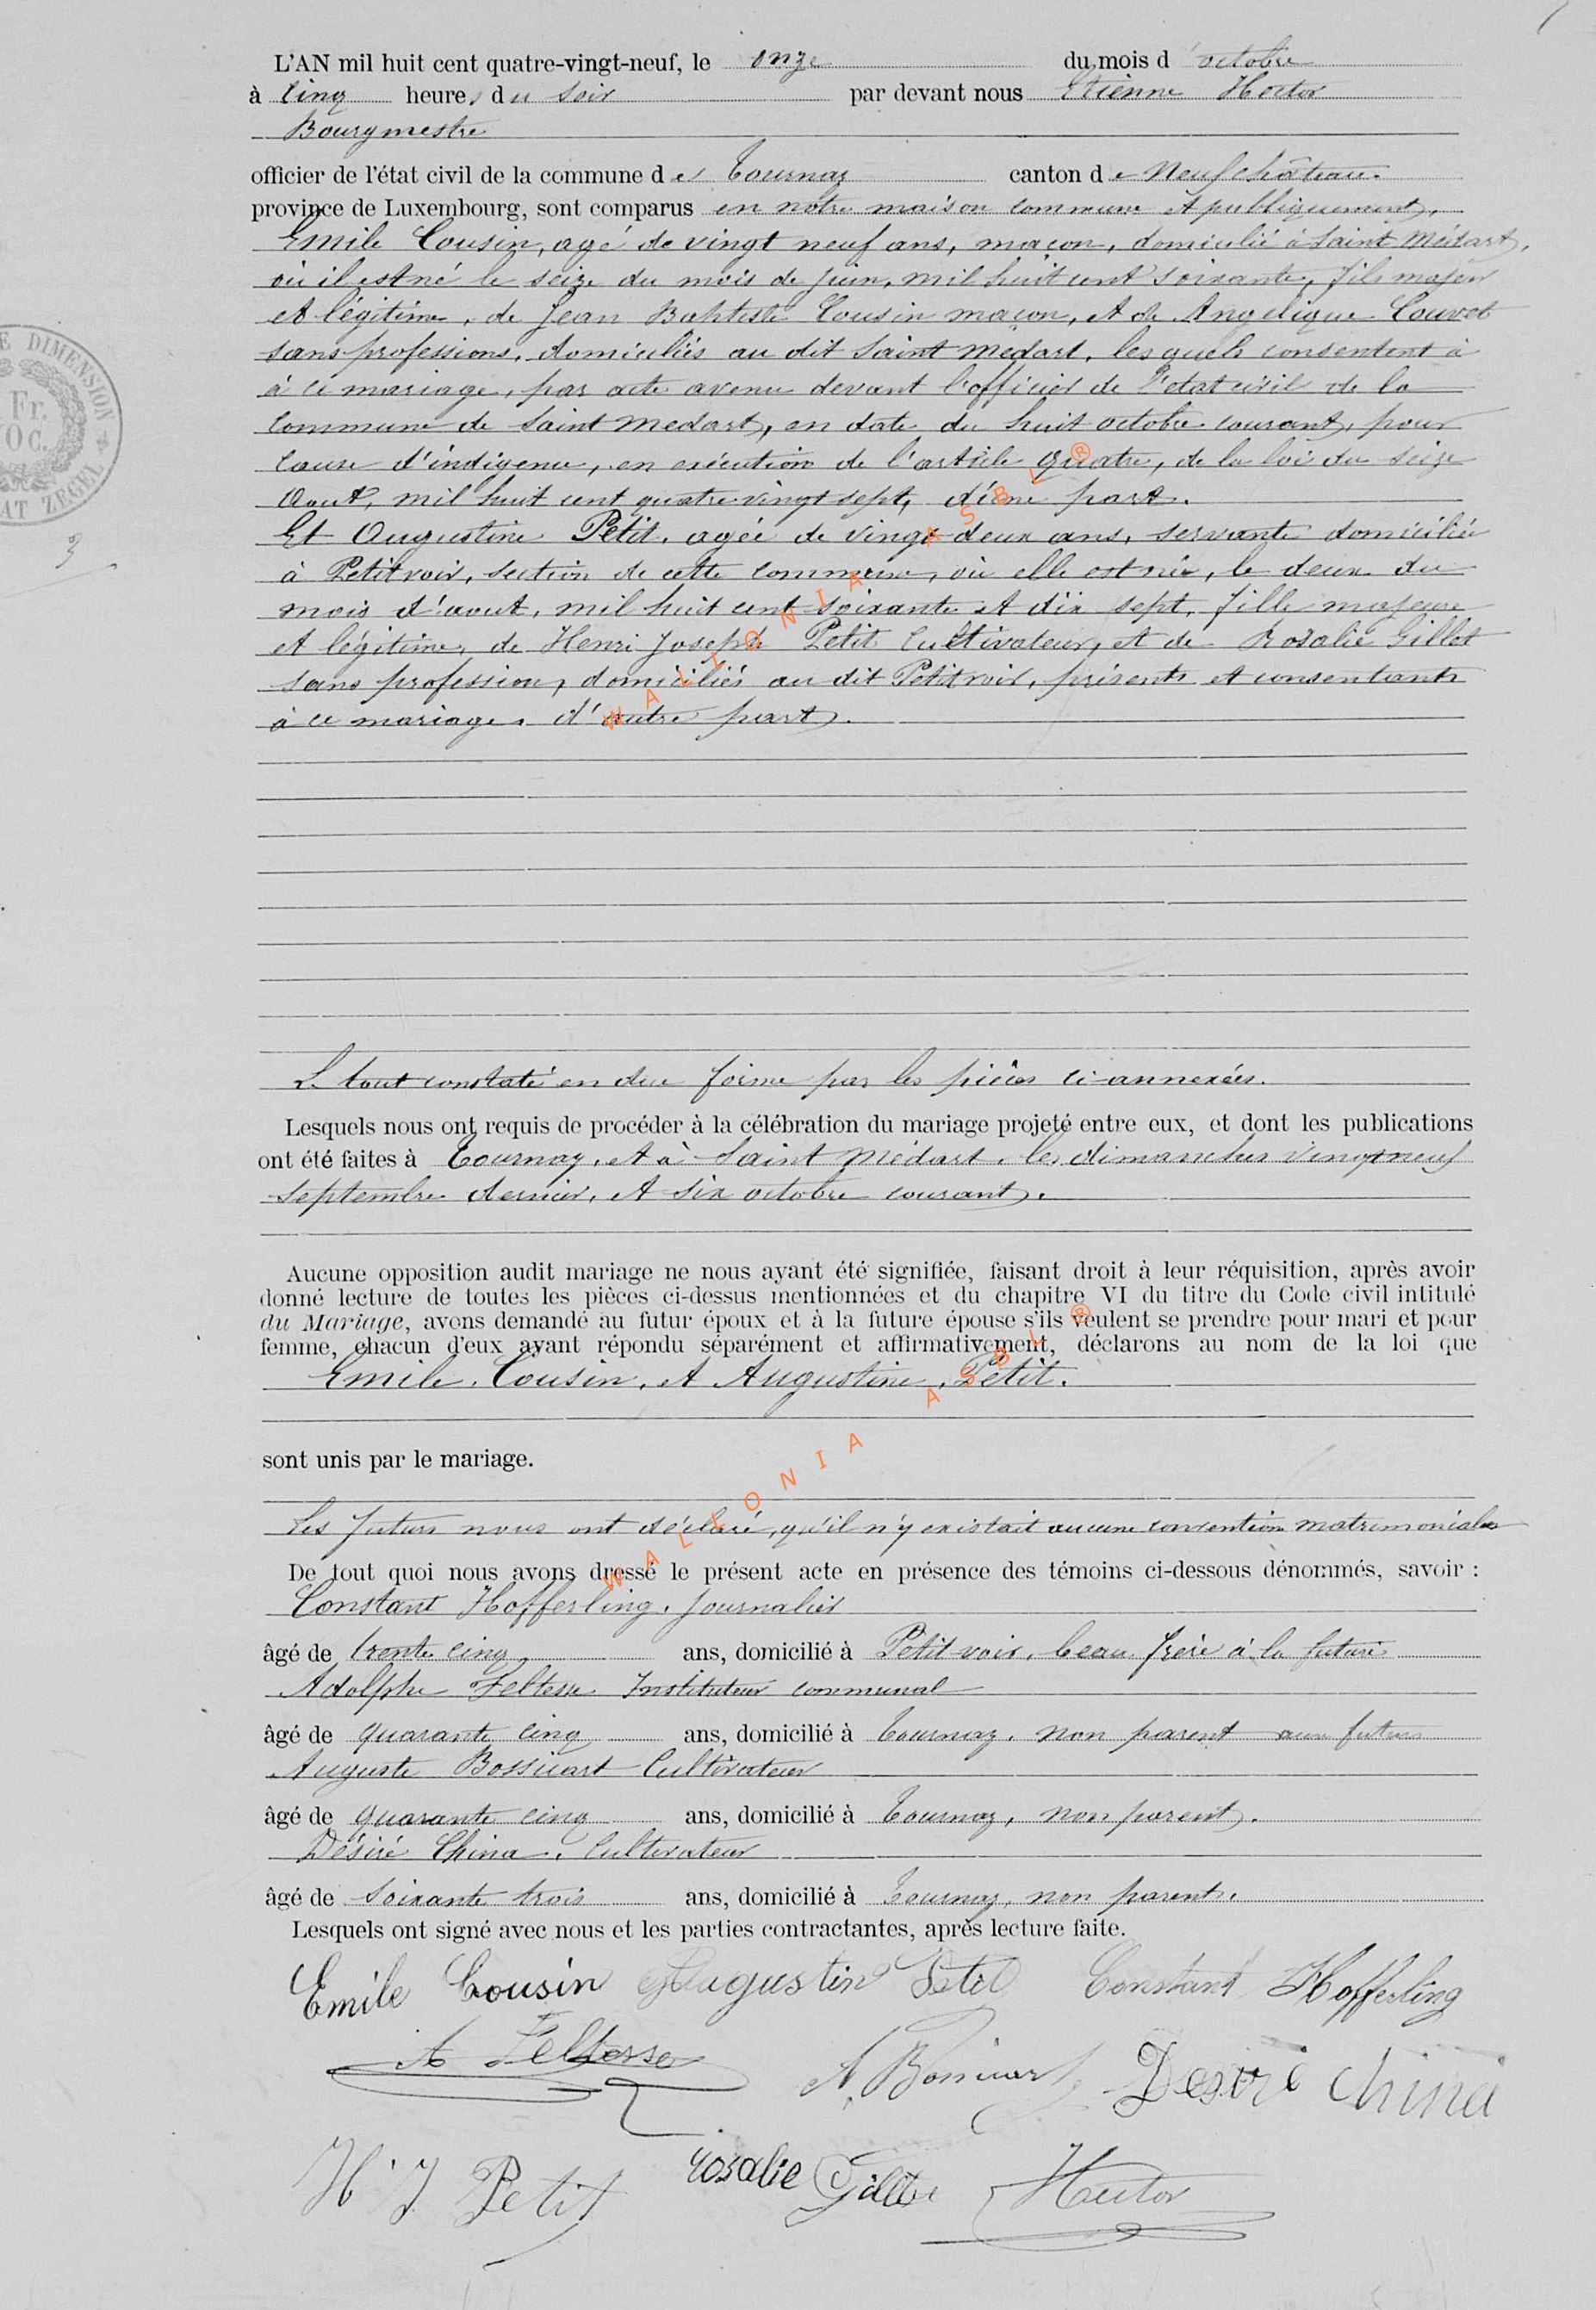 L'AN mil huit cent quatre-vingt-neuf, le onze du mois d'octobre
à Cinq heures du soir par devant nous Etienne Hector
Bourgmestre
officier de l'état civil de la commune de Tournay canton de Neufchâteau.
province de Luxembourg, sont comparus en notre maison commune et publiquement,
Emile Cousin, agé de vingt neuf ans, maçon, domicilié à Saint Médart,
où il est né le seize du mois de juin, mil huit cent soixante, fils majeur
et légitime, de Jean Baptiste Cousin maçon, et de Angelique Couvet
sans professions, domiciliés au dit Saint Medart, lesquels consentent à
à ce mariage, par acte avenu devant l'officier de l'etat civil de la
commune de Saint Medart, en date du huit octobre courant, pour
cause d'indigence, en exécution de l'article quatre, de la loi du seize
Aout, mil huit cent quatre vingt sept, d'une part.
Et Augustine Petit, agée de vingt-deux ans, servante domiciliée
à Petitvoir, section de cette commune, où elle est née, le deux du
mois d'aout, mil huit cent soixante et dix sept, fille majeure
et légitime, de Henri Joseph Petit Cultivateur, et de Rosalie Gillet
sans profession, domiciliés au dit Petitvoir, présents et consentants
à ce mariage, d'autre part.
Le tout constaté en due forme par les pièces ci-annexées.
Lesquels nous ont requis de procéder à la célébration du mariage projeté entre eux, et dont les publications
ont été faites à Tournay, et à Saint Médart, les dimanches vingt neuf
septembre dernier, et six octobre courant.
Aucune opposition audit mariage ne nous ayant été signifiée, faisant droit à leur réquisition, après avoir
donné lecture de toutes les pièces ci-dessus mentionnées et du chapitre VI du titre du Code civil intitulé
du Mariage, avons demandé au futur époux et à la future épouse s'ils veulent se prendre pour mari et pour
femme, chacun d'eux ayant répondu séparément et affirmativement, déclarons au nom de la loi que
Emile Cousin, et Augustine Petit.
sont unis par le mariage.
Les futurs nous ont déclaré, qu'il n'y existait aucune convention matrimoniale
De tout quoi nous avons dressé le présent acte en présence des témoins ci-dessous dénommés, savoir :
Constant Hofferling, journalier
âgé de trente cinq ans, domicilié à Petit voir, beau frère à la future
Adolphe Feltesse Instituteur communal
âgé de quarante cinq ans, domicilié à Tournay, non parent aux futurs
Auguste Bossicart Cultivateur
âgé de quarante cinq ans, domicilié à Tournay, non parent.
Désiré China, Cultivateur
âgé de soixante trois ans, domicilié à Tournay, non parent.
Lesquels ont signé avec nous et les parties contractantes, après lecture faite.
Emile Cousin Augustine Petit Constant Hofferling
A Feltesse A. Bossicart Desiré China
H. J. Petit rosalie Gillet Hector
DIMENSION
Fr.
ZEGEL
3
WALLONIA ASBL ®
WALLONIA ASBL ®